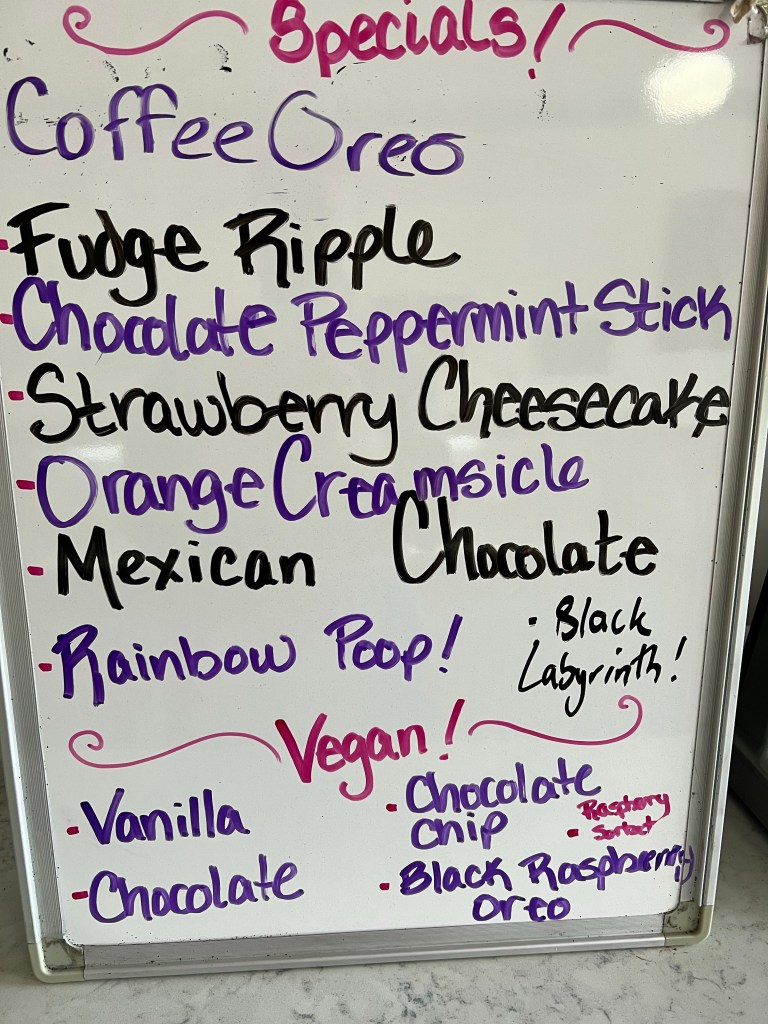 Specials!
Coffee Oreo
- Fudge Ripple
- Chocolate Peppermint Stick
- Strawberry Cheesecake
- Orange Creamsicle
- Mexican Chocolate
- Rainbow Poop!
· Black
Labyrinth!
Vegan!
- Vanilla
- Chocolate
- Chocolate
Chip
- Raspberry
Sorbet
- Black Raspberry
Oreo